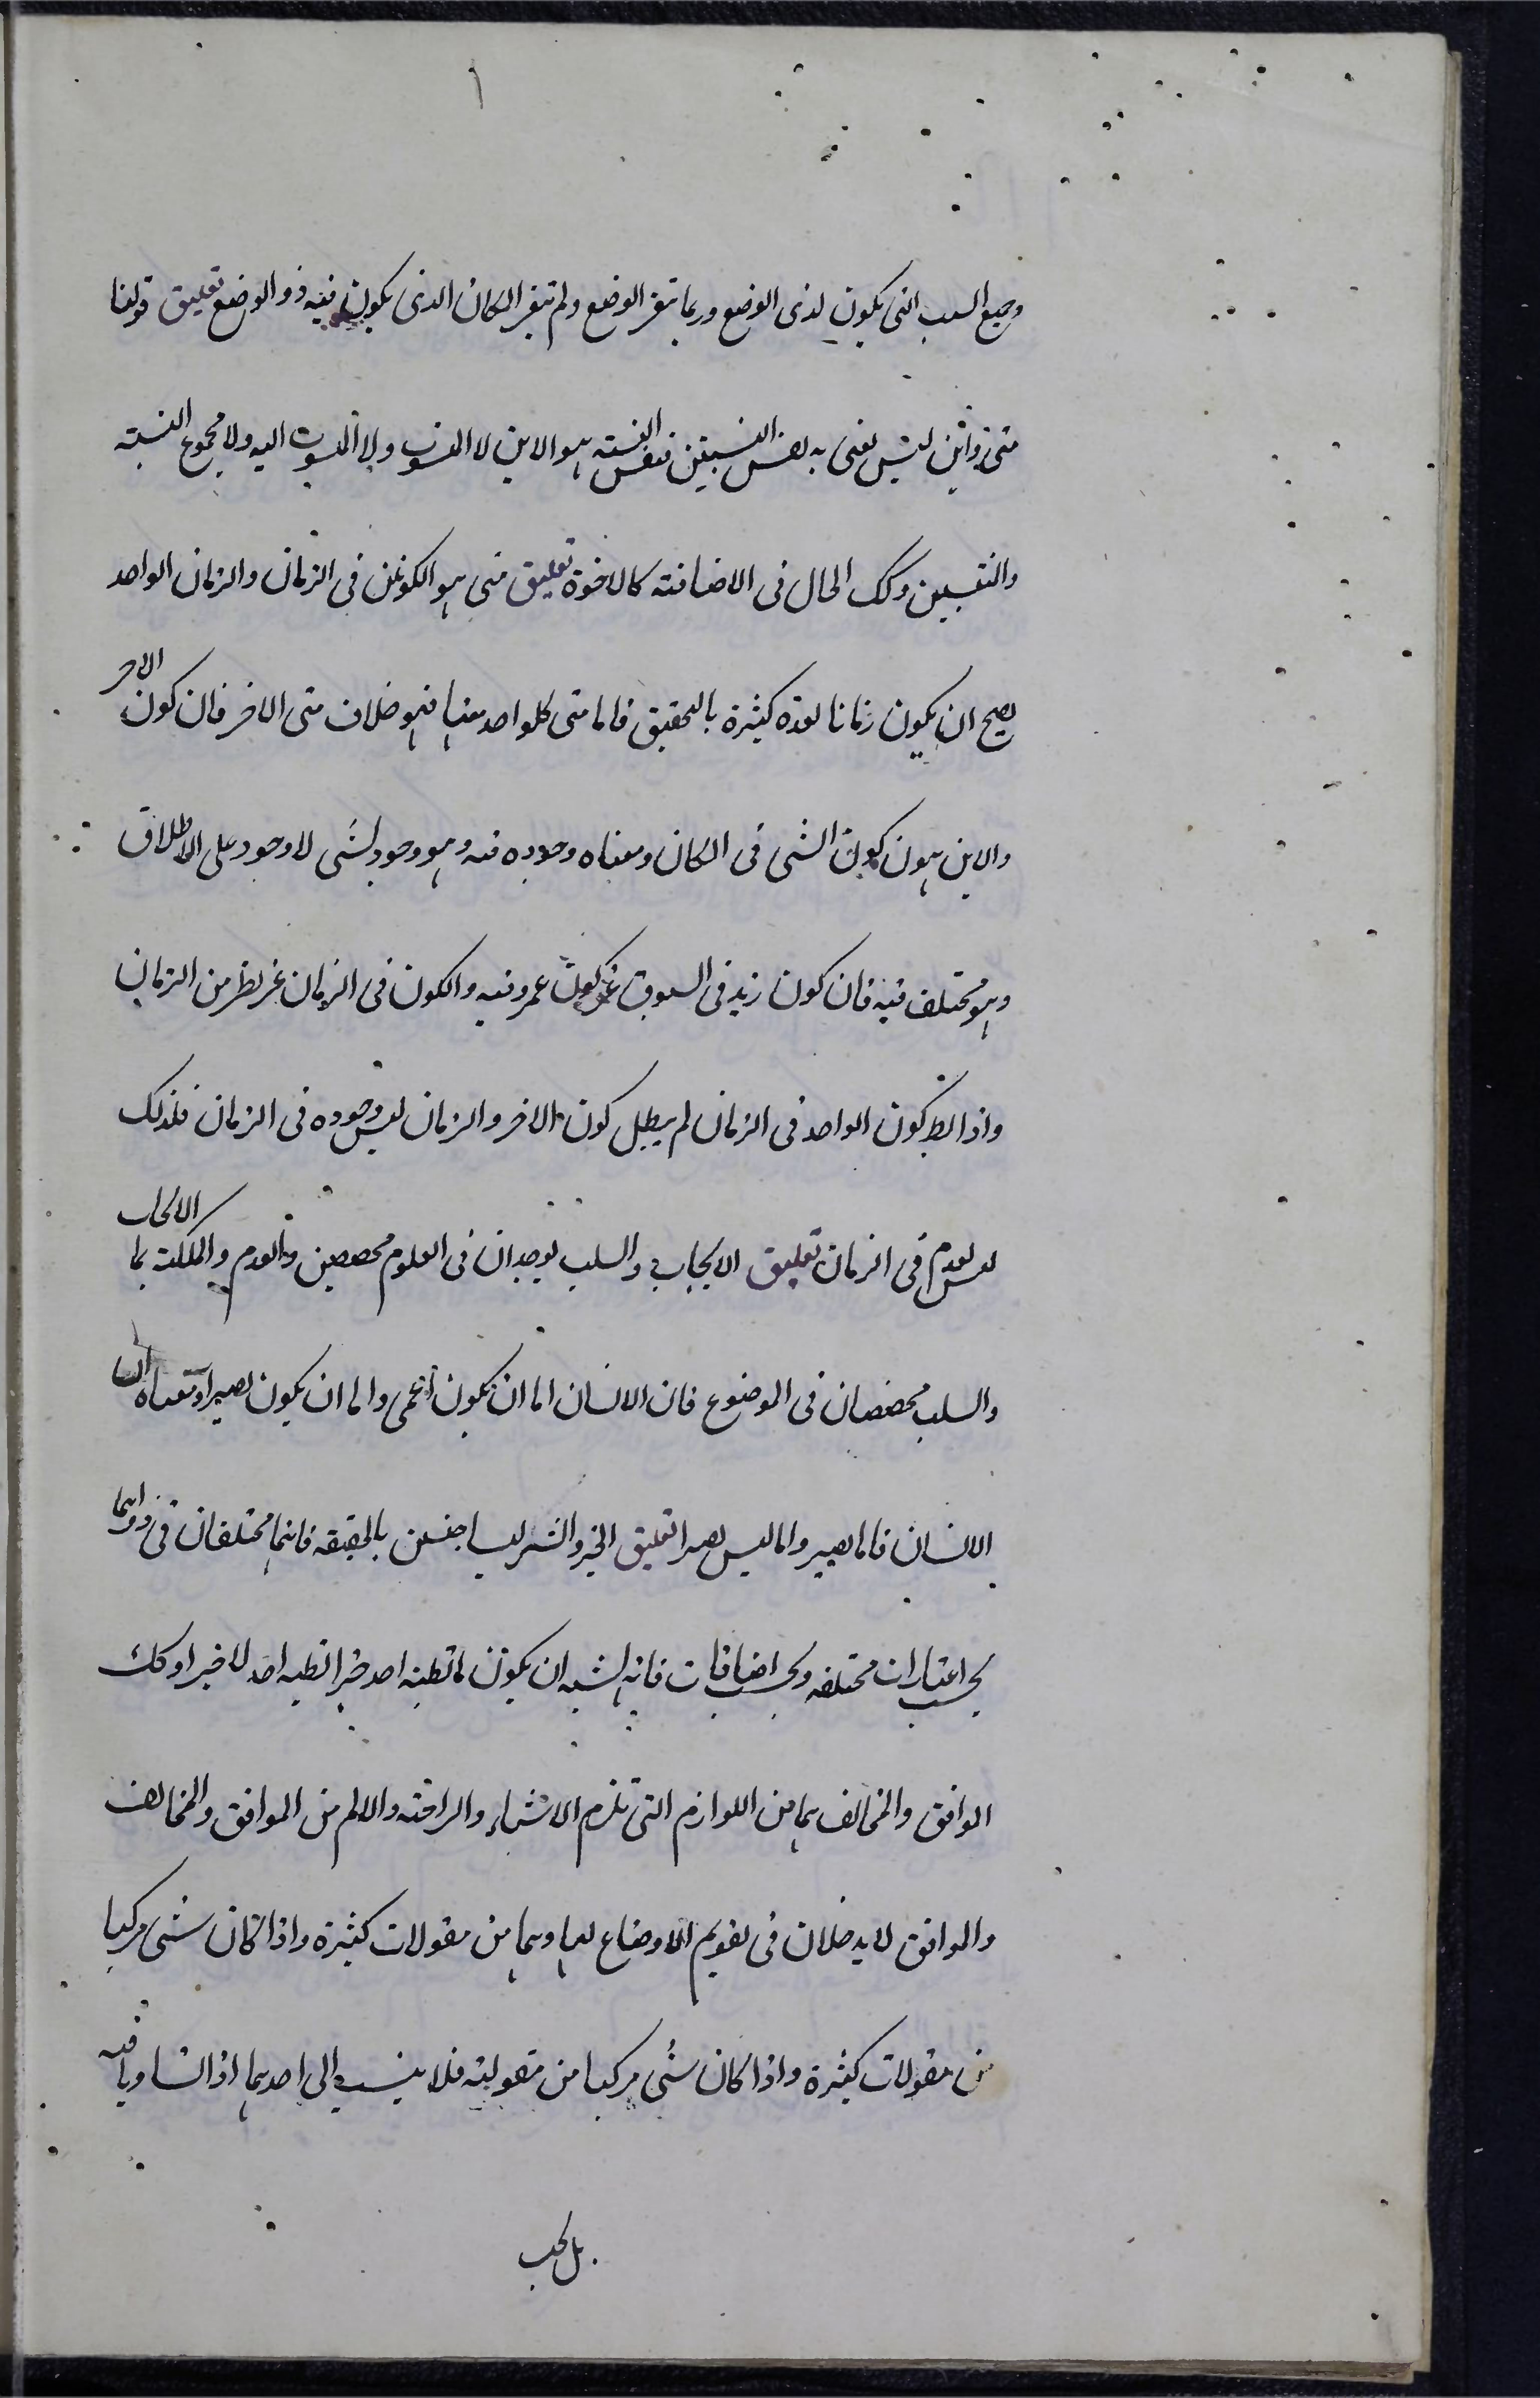 ١
وجميع النسب التى يكون لذى الوضع وربما تتغير الوضع ولم تتغير المكان الذى يكون فيه ذو الوضع تعليق قولنا
متى واين ليس نعنى به نفس النسبتين فنفس النسبته هو الاين لا المنسوب ولا المنسوب اليه ولا مجموع النسبته
والنفسين وكك الحال فى الاضافته كالاخوة تعليق متى هو الكون فى الزمان والزمان الواحد
يصح ان يكون زمانا لعدة كثيرة بالتحقيق فاما متى كلواحد منها فهو خلاف متى الاخر فان كون الاخر
والاين هو كون الشى فى المكان ومعناه وجوده فيه وهو وجود لشى لا وجود على الاطلاق
وهو مختلف فيه فان كون زيد فى السوق غير كون عمرو فيه والكون فى الزمان غير من الزمان
واذا بطل كون الواحد فى الزمان لم يبطل كون الاخر والزمان ليس وجوده فى الزمان فلذلك
ليس يعدم فى الزمان تعليق الايجاب والسلب يوجدان فى العلوم مخصصين والعدم والملكة بما الايجاب
والسلب مخصصان فى الموضوع فان الانسان اما ان يكون اعمى واما ان يكون بصيرا ومعناه ان
الانسان فاما بصير واما ليس بصيرا تعليق الخير والشر ليسا جنسين بالحقيقه فانهما مختلفان فى ذواتهما
بحسب اعتبارات مختلفه وبحسب اضافات فانه يشبه ان يكون ما يظنه احد خيرا يظنه احد لا خيرا وكك
الموافق والمخالف هما من اللوازم التى تلزم الاشياء والراحته والالم من الموافق والمخالف
والموافق لا يدخلان فى تقويم الاوضاع لهما وهما من مقولات كثيرة واذا كان شى مركبا
من مقولات كثيرة واذا كان شى مركبا من مقولته فلا ينسب الى احدهما اذا تساويا فيه
بل بحب